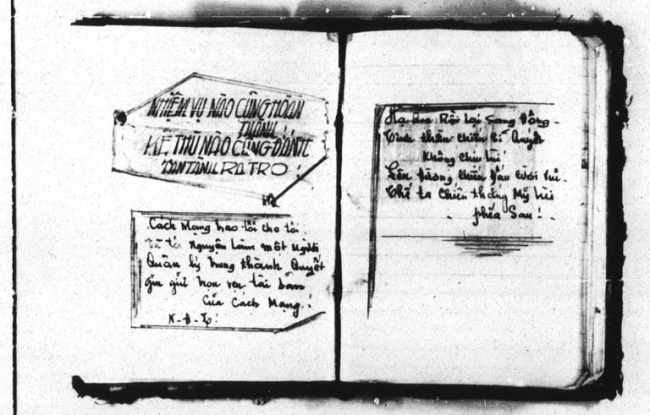 NHIỆM VỤ NÀO CŨNG HOÀN
THÀNH,
KẺ THÙ NÀO CŨNG ĐÁNH
TAN TÀNH RA TRO!
Cách Mạng trao tôi cho tôi
Và tôi Nguyện làm một Người
Quản lý trung thành Quyết
gìn giữ trọn vẹn tài sản
Của Cách Mạng!
Hạ qua Rồi lại Sang Đông
Tinh thần chiến sĩ Quyết
Không chịu lùi
Lên đường chiến đấu cười vui
Thề ta chiến thắng Mỹ lùi
phía Sau!